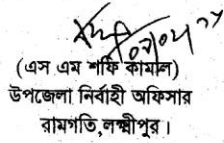 (এস এম শফি কামাল)
উপজেলা নির্বাহী অফিসার
রামগতি,লক্ষ্মীপুর।